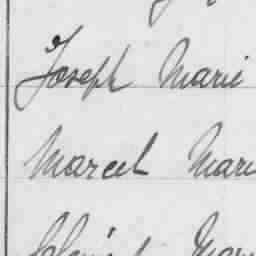 Joseph Marie
Marcel Mari